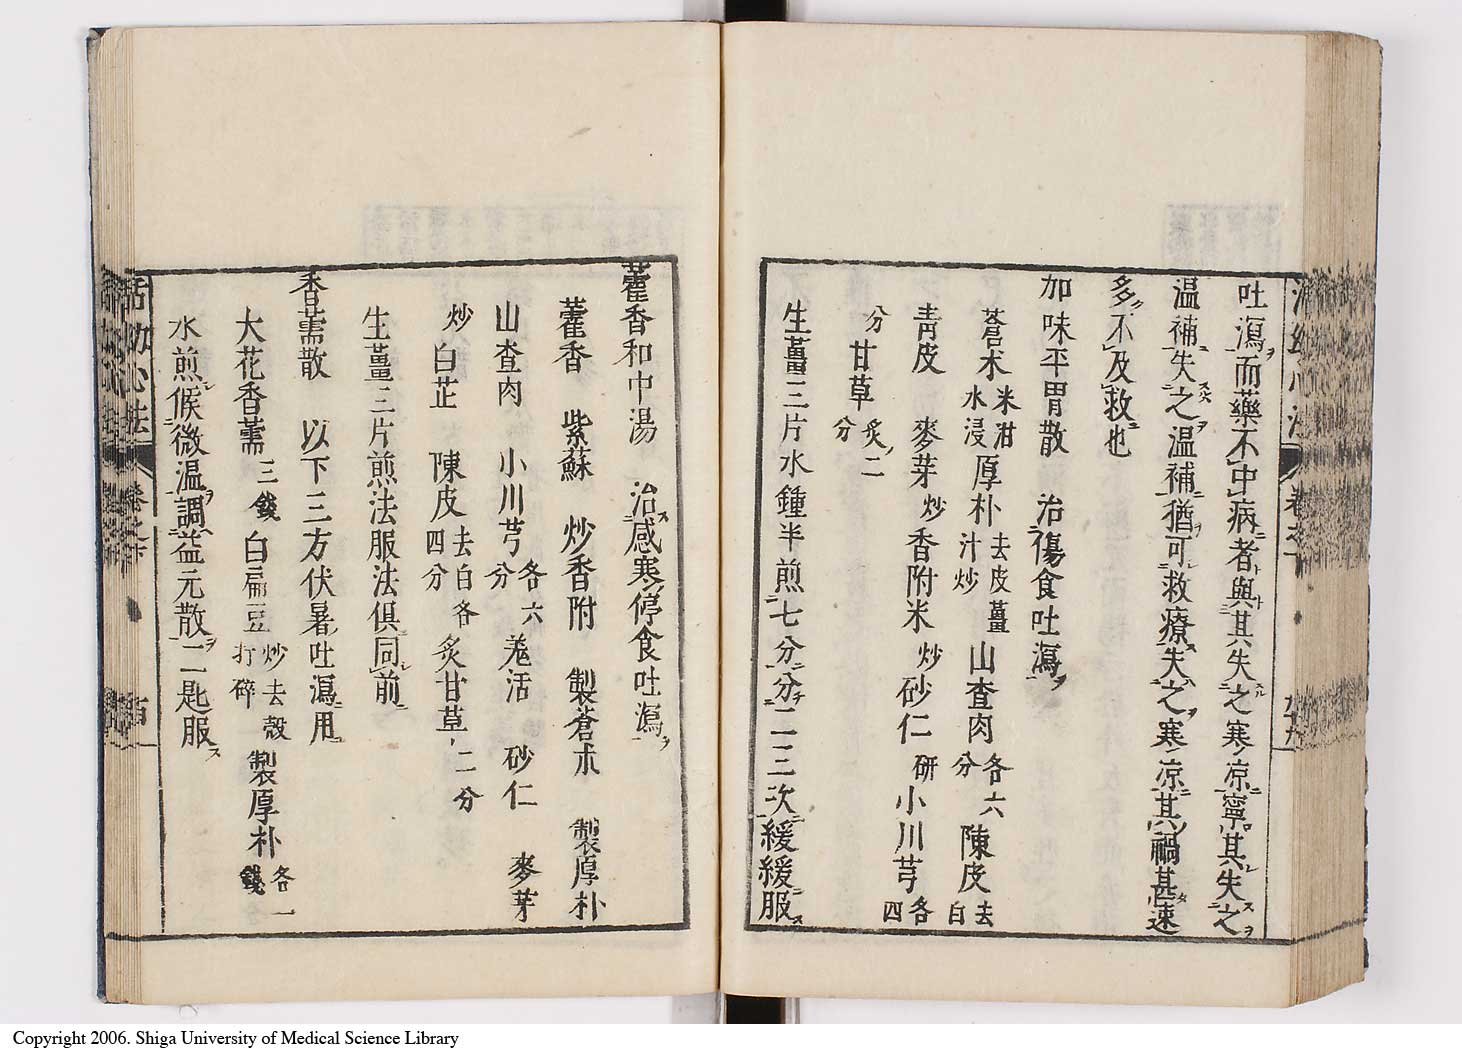 吐瀉而藥不中病者與其失之寒凉寧其失之
温補失之温補猶可救療失之寒凉其禍甚速
多不及救也
加味平胃散 治傷食吐瀉
蒼朮米泔水浸 厚朴去皮薑汁炒 山査肉各六分 陳皮去白
靑皮 麥芽炒 香附米炒 砂仁研 小川芎各四
分 甘草炙二分
生薑三片水鍾半煎七分分二三次緩緩服
藿香和中湯 治感寒停食吐瀉
藿香 紫蘇 炒香附 製蒼朮 製厚朴
山査肉 小川芎各六分 羗活 砂仁 麥芽
炒 白芷 陳皮去白各四分 炙甘草二分
生薑三片煎法服法俱同前
香薷散 以下三方伏暑吐瀉用
大花香薷三錢 白扁豆炒去殼打碎 製厚朴各一錢
水煎候微温調益元散二匙服
活幼心法
卷之下
Copyright 2006. Shiga University of Medical Science Library